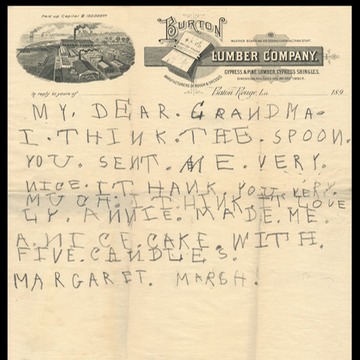 Paid up Capital $ 150,000.00
BURTON
LUMBER COMPANY.
CYPRESS & PINE LUMBER, CYPRESS SHINGLES,
In reply to yours of
Baton Rouge, La. 189
MY. DEAR. GRANDMA.
I. THINK. THE. SPOON.
YOU. SENT. ME. VERY.
NICE. I THANK. YOU. VERY.
MUCH. I THINK. IT. LOVE
LY. ANNIE. MADE. ME.
A. NICE. CAKE. WITH.
FIVE. CANDLES.
MARGARET. MARSH.